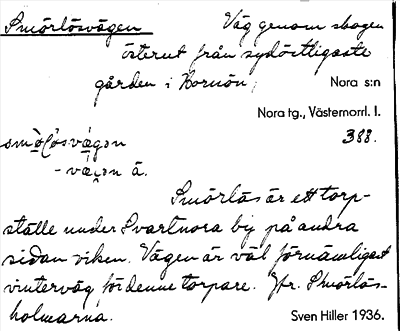 Smörlösvägen Väg genom skogen
österut från sydöstligaste
gården i Hornön, Nora s:n
Nora tg., Västernorrl. l.
388.
- vä̀gən ä.
Smörlös är ett torp-
ställe under Svartnora by på andra
sidan viken. Vägen är väl förnämligast
vinterväg för denne torpare. Jfr. Smörlös-
holmarna. Sven Hiller 1936.